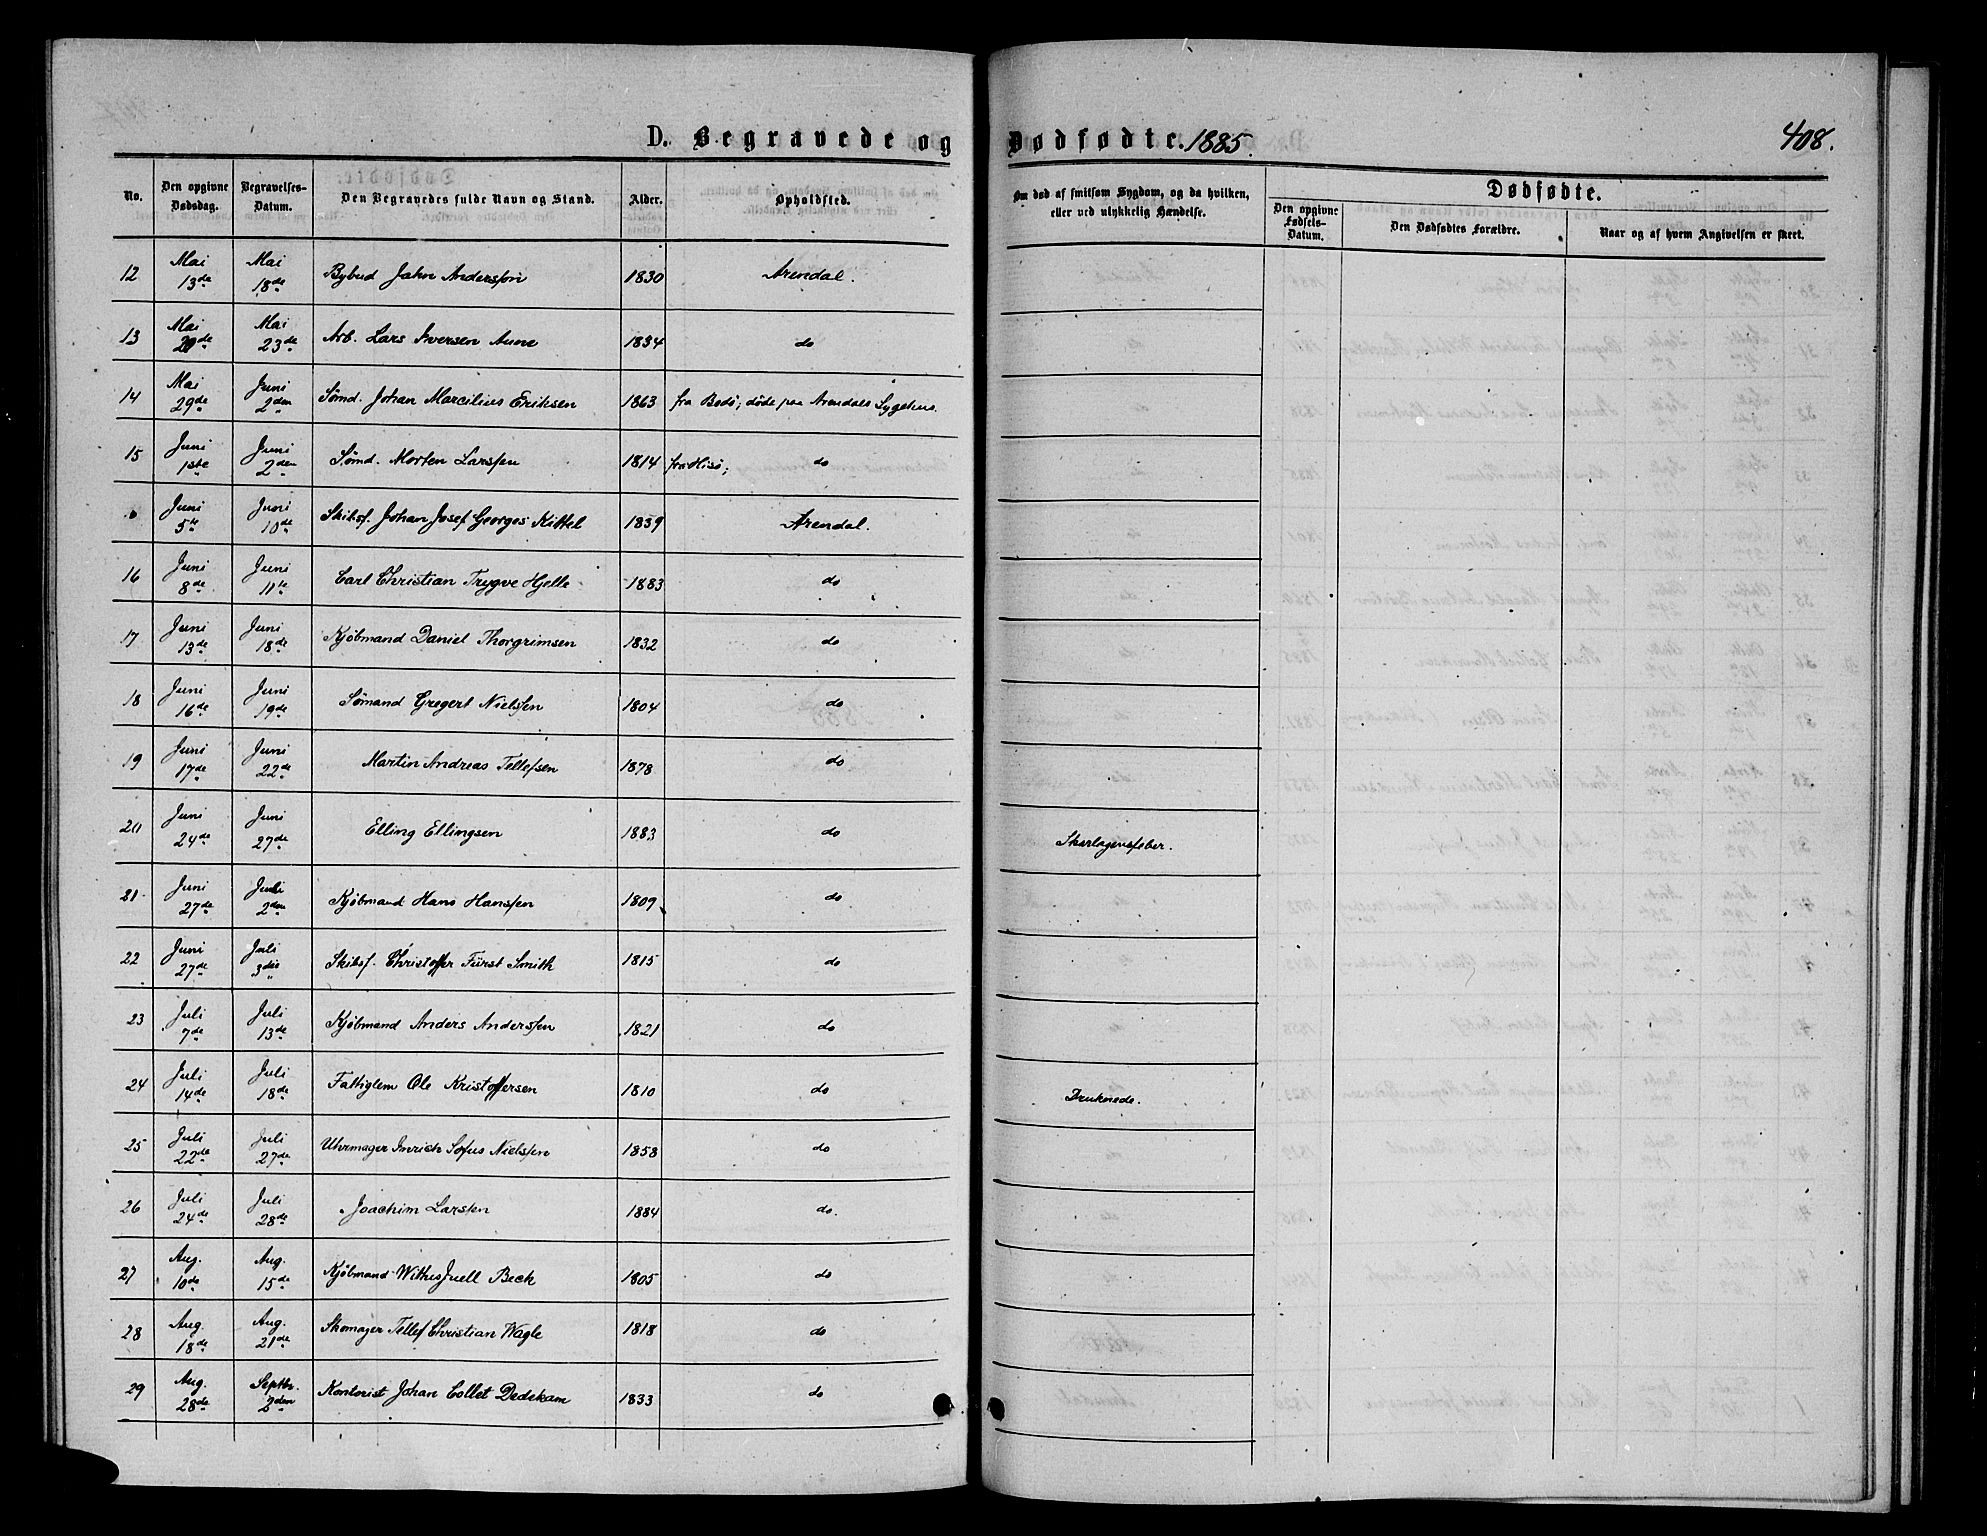 D. Begravede og Dødfødte. 1885. 408.
No. Den opgivne Dødsdag. Begravelses-Datum. Den Begravedes fulde Navn og Stand. Alder. Opholdsted. Om død af smitsom Sygdom, og da hvilken, eller ved ulykkelig Hændelse. Dødfødte.
Den opgivne Fødsels-Datum. Den Dødfødtes Forældre. Naar og af hvem Angivelsen er skeet.
12 Mai 13de Mai 18de Bybud Jahn Anderssøn 1830 Arendal.
13 Mai Mai 23de Arb. Lars Iversen Aune 1834 do
14 Mai 29de Juni 2den Sømd. Johan Marcilius Eriksen 1863 fra Bodø; døde paa Arendals Sygehus.
15 Juni 1ste Juni 2den Sømd. Morten Larssen 1814 fra Hisø; do
Juni 5te Juni 10de Skibsf. Johan Josef Georges Kittel 1839 Arendal.
16 Juni 8de Juni 11te Carl Christian Trygve Hjelle 1883 do
17 Juni 13de Juni 18de Kjøbmand Daniel Thorgrimsen 1832 do
18 Juni 16de Juni 19de Sømand Gregert Nielssen 1804 do
19 Juni 17de Juni 22de Martin Andreas Tellefsen 1878 do
20 Juni 24de Juni 27de Elling Ellingsen 1883 do Skarlagensfeber.
21 Juni 27de Juli 2den Kjøbmand Hans Hanssen 1809 do
22 Juni 27de Juli 3die Skibsf. Christoffer Fürst Smith 1815 do
23 Juli 7de Juli 13de Kjøbmand Anders Anderssen 1821 do
24 Juli 14de Juli 18de Fattiglem Ole Kristoffersen 1810 do Druknede.
25 Juli 22de Juli 27de Uhrmager Inrich Sofus Nielssen 1858 do
26 Juli 24de Juli 28de Joachim Larssen 1884 do.
27 Aug. 10de Aug. 15de Kjøbmand Withus Juell Beck 1805 do
28 Aug. 18de Aug. 21de Skomager Tellef Christian Wagle 1818 do
29 Aug. 28de Septbr. 2den Kontorist Johan Collet Dedekam 1833 do